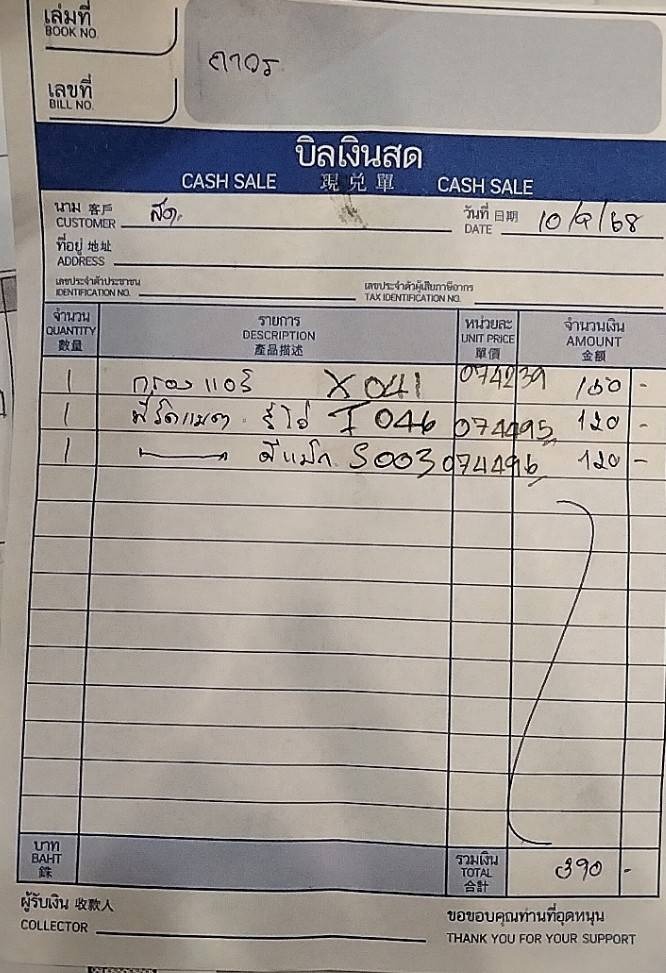 เล่มที่
BOOK NO.
ถาวร
เลขที่
BILL NO.
บิลเงินสด
CASH SALE 現兌單 CASH SALE
นาม 客戶 CUSTOMER สด. วันที่ 日期 DATE 10/9/68
ที่อยู่ 地址
ADDRESS
เลขประจำตัวประชาชน IDENTIFICATION NO. เลขประจำตัวผู้เสียภาษีอากร TAX IDENTIFICATION NO.
จำนวน รายการ หน่วยละ จำนวนเงิน
QUANTITY DESCRIPTION UNIT PRICE AMOUNT
數量 產品描述 單價 金額
1 กรองแอร์ X041 074239 150 -
1 รีโม่ I046 074495 120 -
1 ดีแม็ก S003 074496 120 -
บาท รวมเงิน
BAHT TOTAL 390 -
銖 合計
ผู้รับเงิน 收款人 ขอขอบคุณท่านที่อุดหนุน
COLLECTOR THANK YOU FOR YOUR SUPPORT